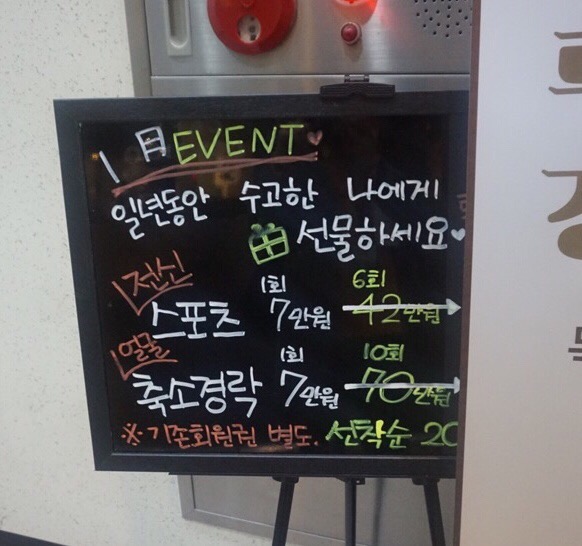 1月 EVENT
일년동안 수고한 나에게
선물하세요
전신
1회 6회
스포츠 7만원 42만원
얼굴
1회 10회
축소경락 7만원 70만원
※기존회원권 별도. 선착순 20